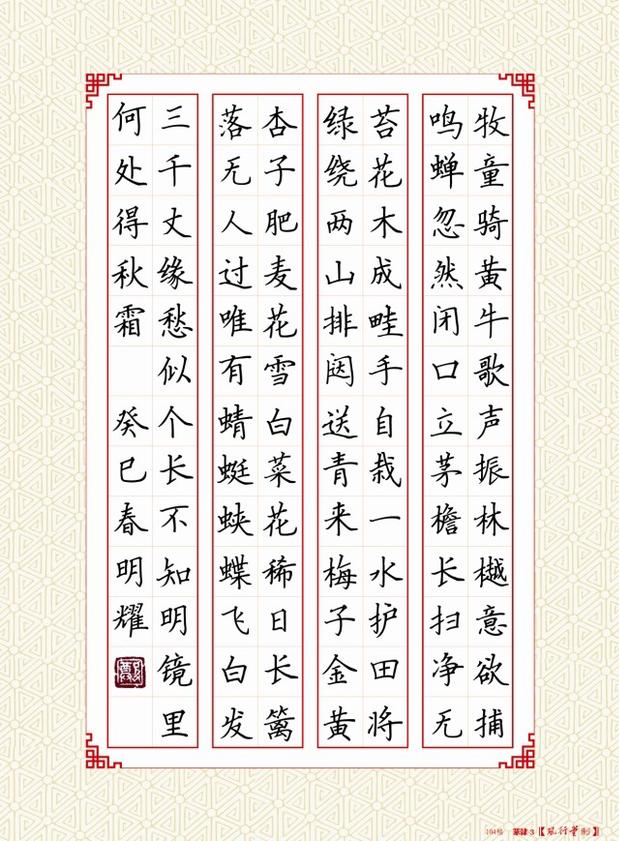 牧童骑黄牛歌声振林樾意欲捕
鸣蝉忽然闭口立茅檐长扫净无
苔花木成畦手自栽一水护田将
绿绕两山排闼送青来梅子金黄
杏子肥麦花雪白菜花稀日长篱
落无人过唯有蜻蜓蛱蝶飞白发
三千丈缘愁似个长不知明镜里
何处得秋霜 癸巳春明耀
104格 篆隶3【风行笔制】